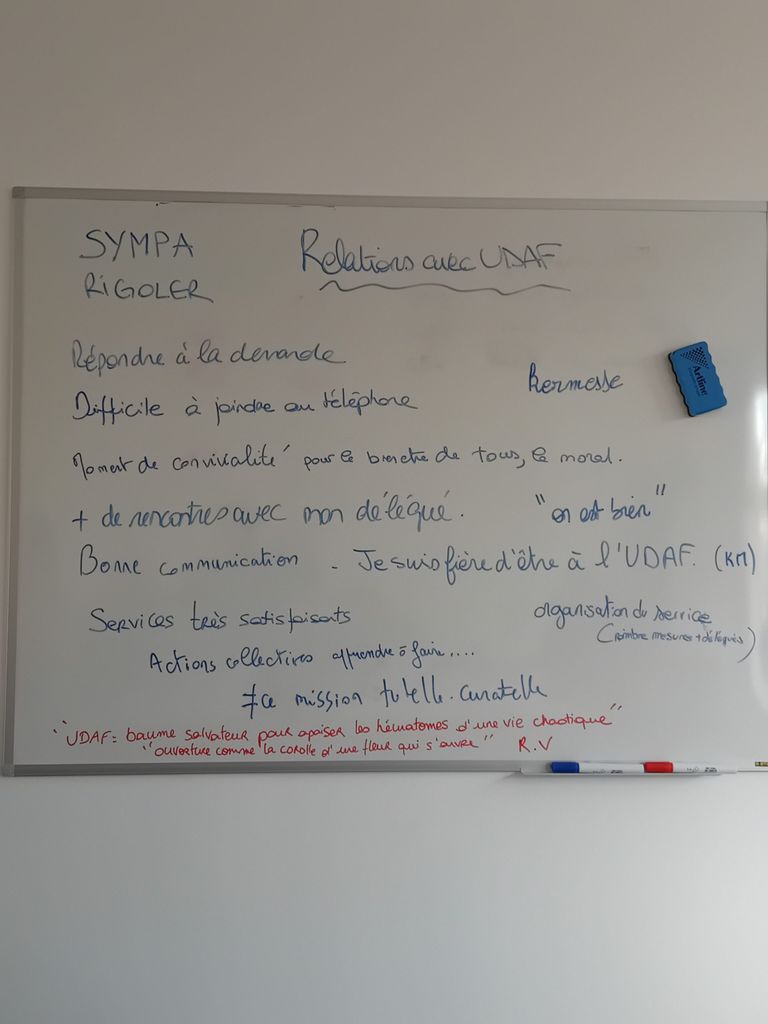 SYMPA
RIGOLER
Relations avec UDAF
Répondre à la demande
Kermesse
Artline
Difficile à joindre au téléphone
Moment de convivialité pour le bien etre de tous, le moral.
+ de rencontres avec mon délégué. "on est bien"
Bonne communication - Je suis fière d'être à l'UDAF. (KM)
Services très satisfaisants
organisation du service
(nombre mesures + délégués)
Actions collectives apprendre à faire....
≠ce mission tutelle.curatelle
"UDAF: baume salvateur pour apaiser les hématomes d'une vie chaotique"
"ouverture comme la corolle d'une fleur qui s'ouvre" R.V